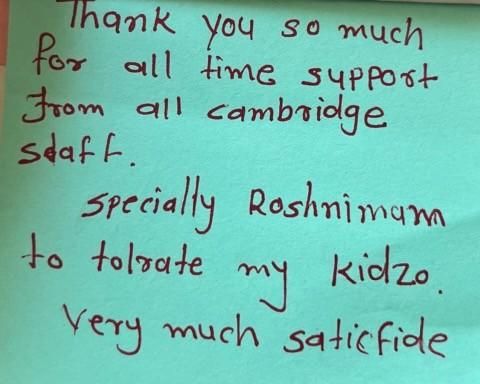 Thank you so much
for all time support
From all cambridge
sdaff.
specially Roshnimam
to tolrate my kidzo.
Very much saticfide